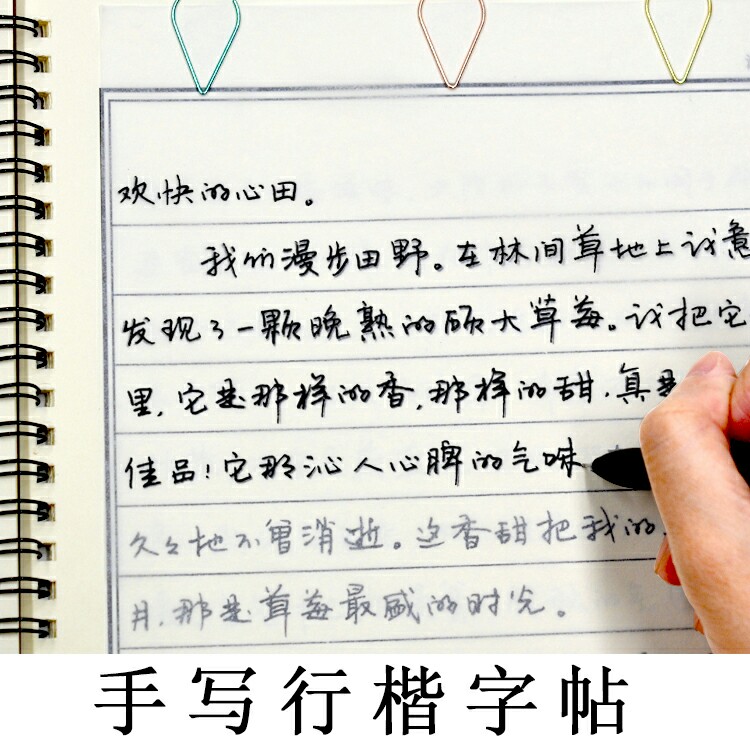 欢快的心田。
我们漫步田野。在林间草地上我意
发现了一颗晚熟的硕大草莓。我把它
里,它是那样的香,那样的甜,真是
佳品!它那沁人心脾的气味
久久地不曾消逝。这香甜把我的
月,那是草莓最盛的时光。
手写行楷字帖